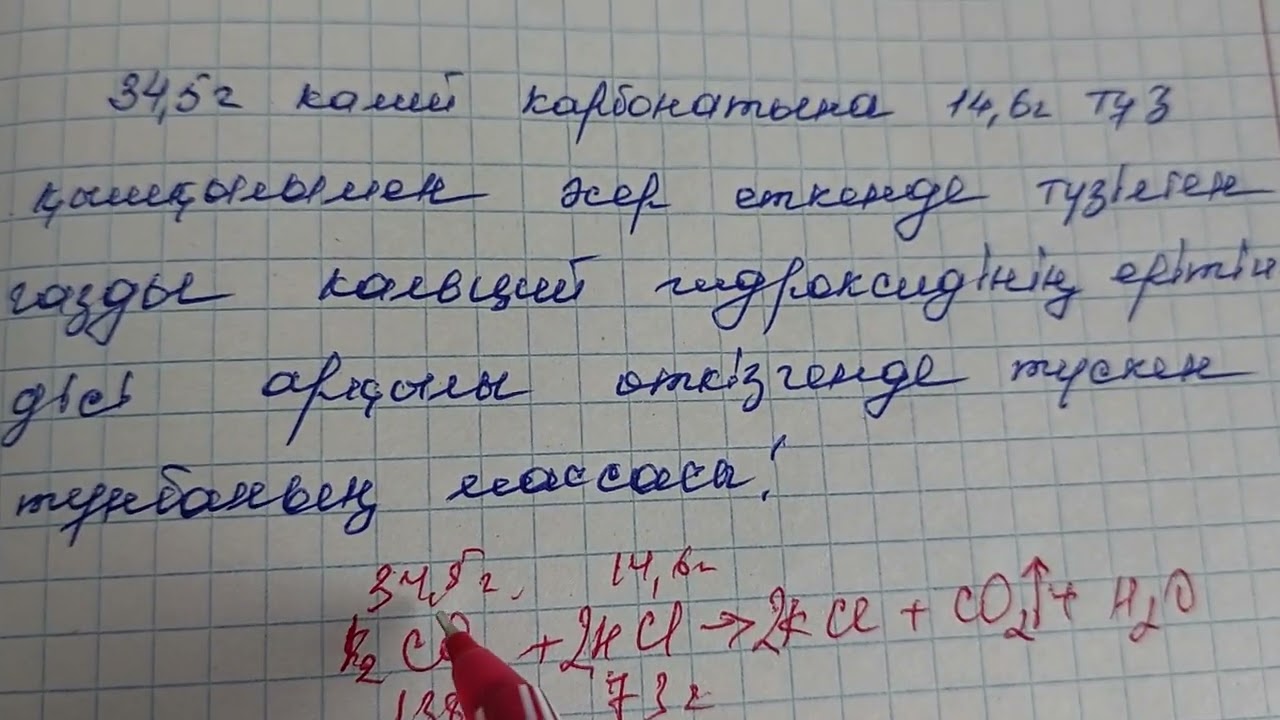 34,5г калий карбонатына 14,6г тұз
қышқылымен әсер еткенде түзілген
газды кальций гидроксидінің ерітін
дісі арқылы өткізгенде түскен
тұнбаның массасы!
34,5г. 14,6г
K₂CO + 2HCl → 2KCl + CO₂↑ + H₂O
138 73г